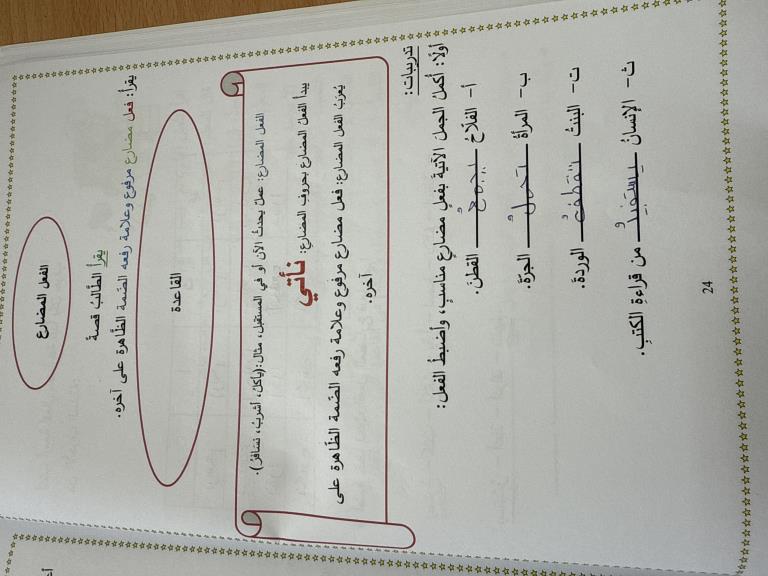 الفعل المضارع
يقرأ الطَّالبُ قصةً
يقرأ: فعل مضارع مرفوع وعلامة رفعه الضمة الظَّاهرة على آخره.
القاعدة
الفعل المضارع: عملٌ يحدثُ الآن أو في المستقبل، مثال:(يأكلُ، أشربُ، نسافرُ).
يبدأ الفعلُ المضارع بحروفِ المضارع: نأتي
يُعرَبُ الفعل المضارع: فعل مضارع مرفوع وعلامة رفعه الضمة الظَّاهرة على
آخره.
تدريبات:
أولًا: أكملُ الجملَ الآتيةَ بفعلٍ مضارعٍ مناسبٍ، وأضبطُ الفعل:
أ- الفلّاحُ يجمعُ القطنَ.
ب- المرأةُ تحملُ الجرّةَ.
ت- البنتُ تقطفُ الوردةَ.
ث- الإنسانُ يستفيدُ من قراءةِ الكتبِ.
24